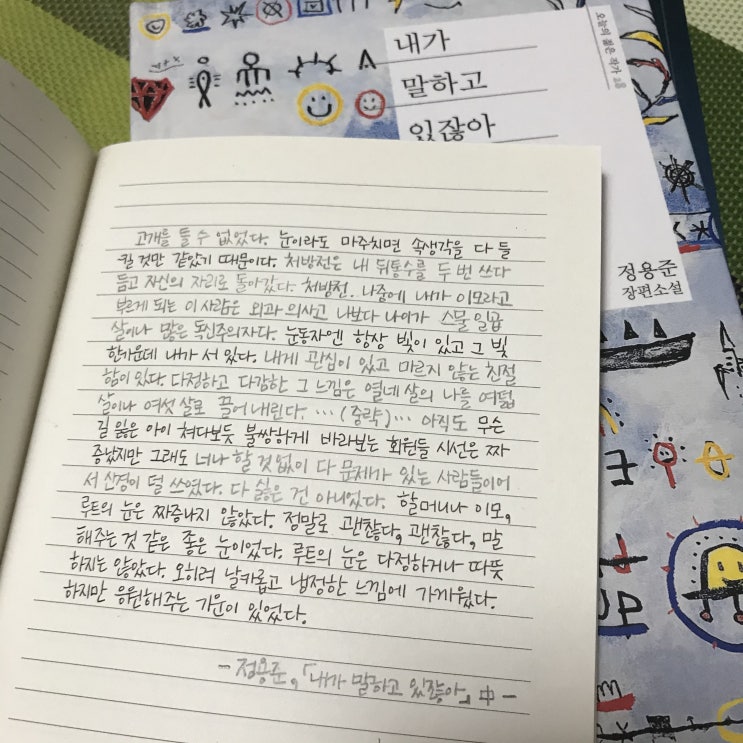 내가
말하고
있잖아
오늘의 젊은 작가 28
정용준
장편소설
고개를 들 수 없었다. 눈이라도 마주치면 속생각을 다 들
킬 것만 같았기 때문이다. 처방전은 내 뒤통수를 두 번 쓰다
듬고 자신의 자리로 돌아갔다. 처방전. 나중에 내가 이모라고
부르게 되는 이 사람은 외과 의사고 나보다 나이가 스물 일곱
살이나 많은 독신주의자다. 눈동자엔 항상 빛이 있고 그 빛
한가운데 내가 서 있다. 내게 관심이 있고 마르지 않는 친절
함이 있다. 다정하고 다감한 그 느낌은 열네 살의 나를 여덟
살이나 여섯 살로 끌어 내린다. … (중략) … 아직도 무슨
길 잃은 아이 쳐다보듯 불쌍하게 바라보는 회원들 시선은 짜
증났지만 그래도 너나 할 것 없이 다 문제가 있는 사람들이어
서 신경이 덜 쓰였다. 다 싫은 건 아니었다. 할머니나 이모,
루트의 눈은 짜증나지 않았다. 정말로 괜찮다, 괜찮다, 말
해주는 것 같은 좋은 눈이었다. 루트의 눈은 다정하거나 따뜻
하지는 않았다. 오히려 날카롭고 냉정한 느낌에 가까웠다.
하지만 응원해주는 기운이 있었다.
- 정용준, 「내가 말하고 있잖아」 中 -